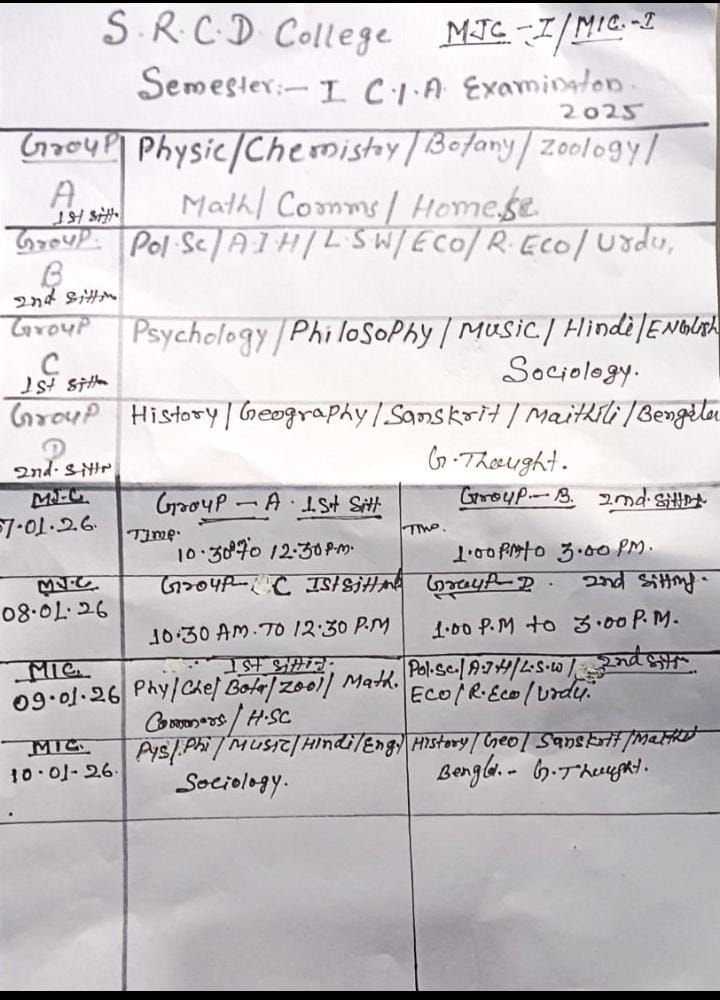 S.R.C.D College MJC-I/MIC.-I
Semester:- I C.I.A Examinaton.
2025
Group A 1st sitt. Physic/Chemistry/Botany/Zoology/
Math/Comms/Home.Sc
Group. B 2nd sittin Pol.Sc/A.I.H/L.S.W/ECO/R.Eco/Urdu,
Group C 1st sittin Psychology/Philosophy/Music/Hindi/English
Sociology.
Group D 2nd. sittin History/Geography/Sanskrit/Maithili/
G.Thought.
MJ.C 7.01.26. Group-A. 1st Sitt Group-B. 2nd. sitting
Time. 10.30 to 12.30 P.M. Time. 1.00 PM to 3.00 PM.
MJ.C 08.01.26 Group-C 1st sitting Group-D. 2nd sitting.
10:30 AM. TO 12.30 P.M 1.00 P.M to 3.00 P.M.
MIC. 09.01.26 1st sitting Pol.Sc./A.I.H/L.S.W/ 2nd sittin
Phy/Che/Bota/Zool/Math. ECO/R.Eco/Urdu.
/H.SC
MIC. 10.01-26. Pys/.Phi/Music/Hindi/Eng/ History/Geo/Sanskrit/
Sociology. G.Thought.